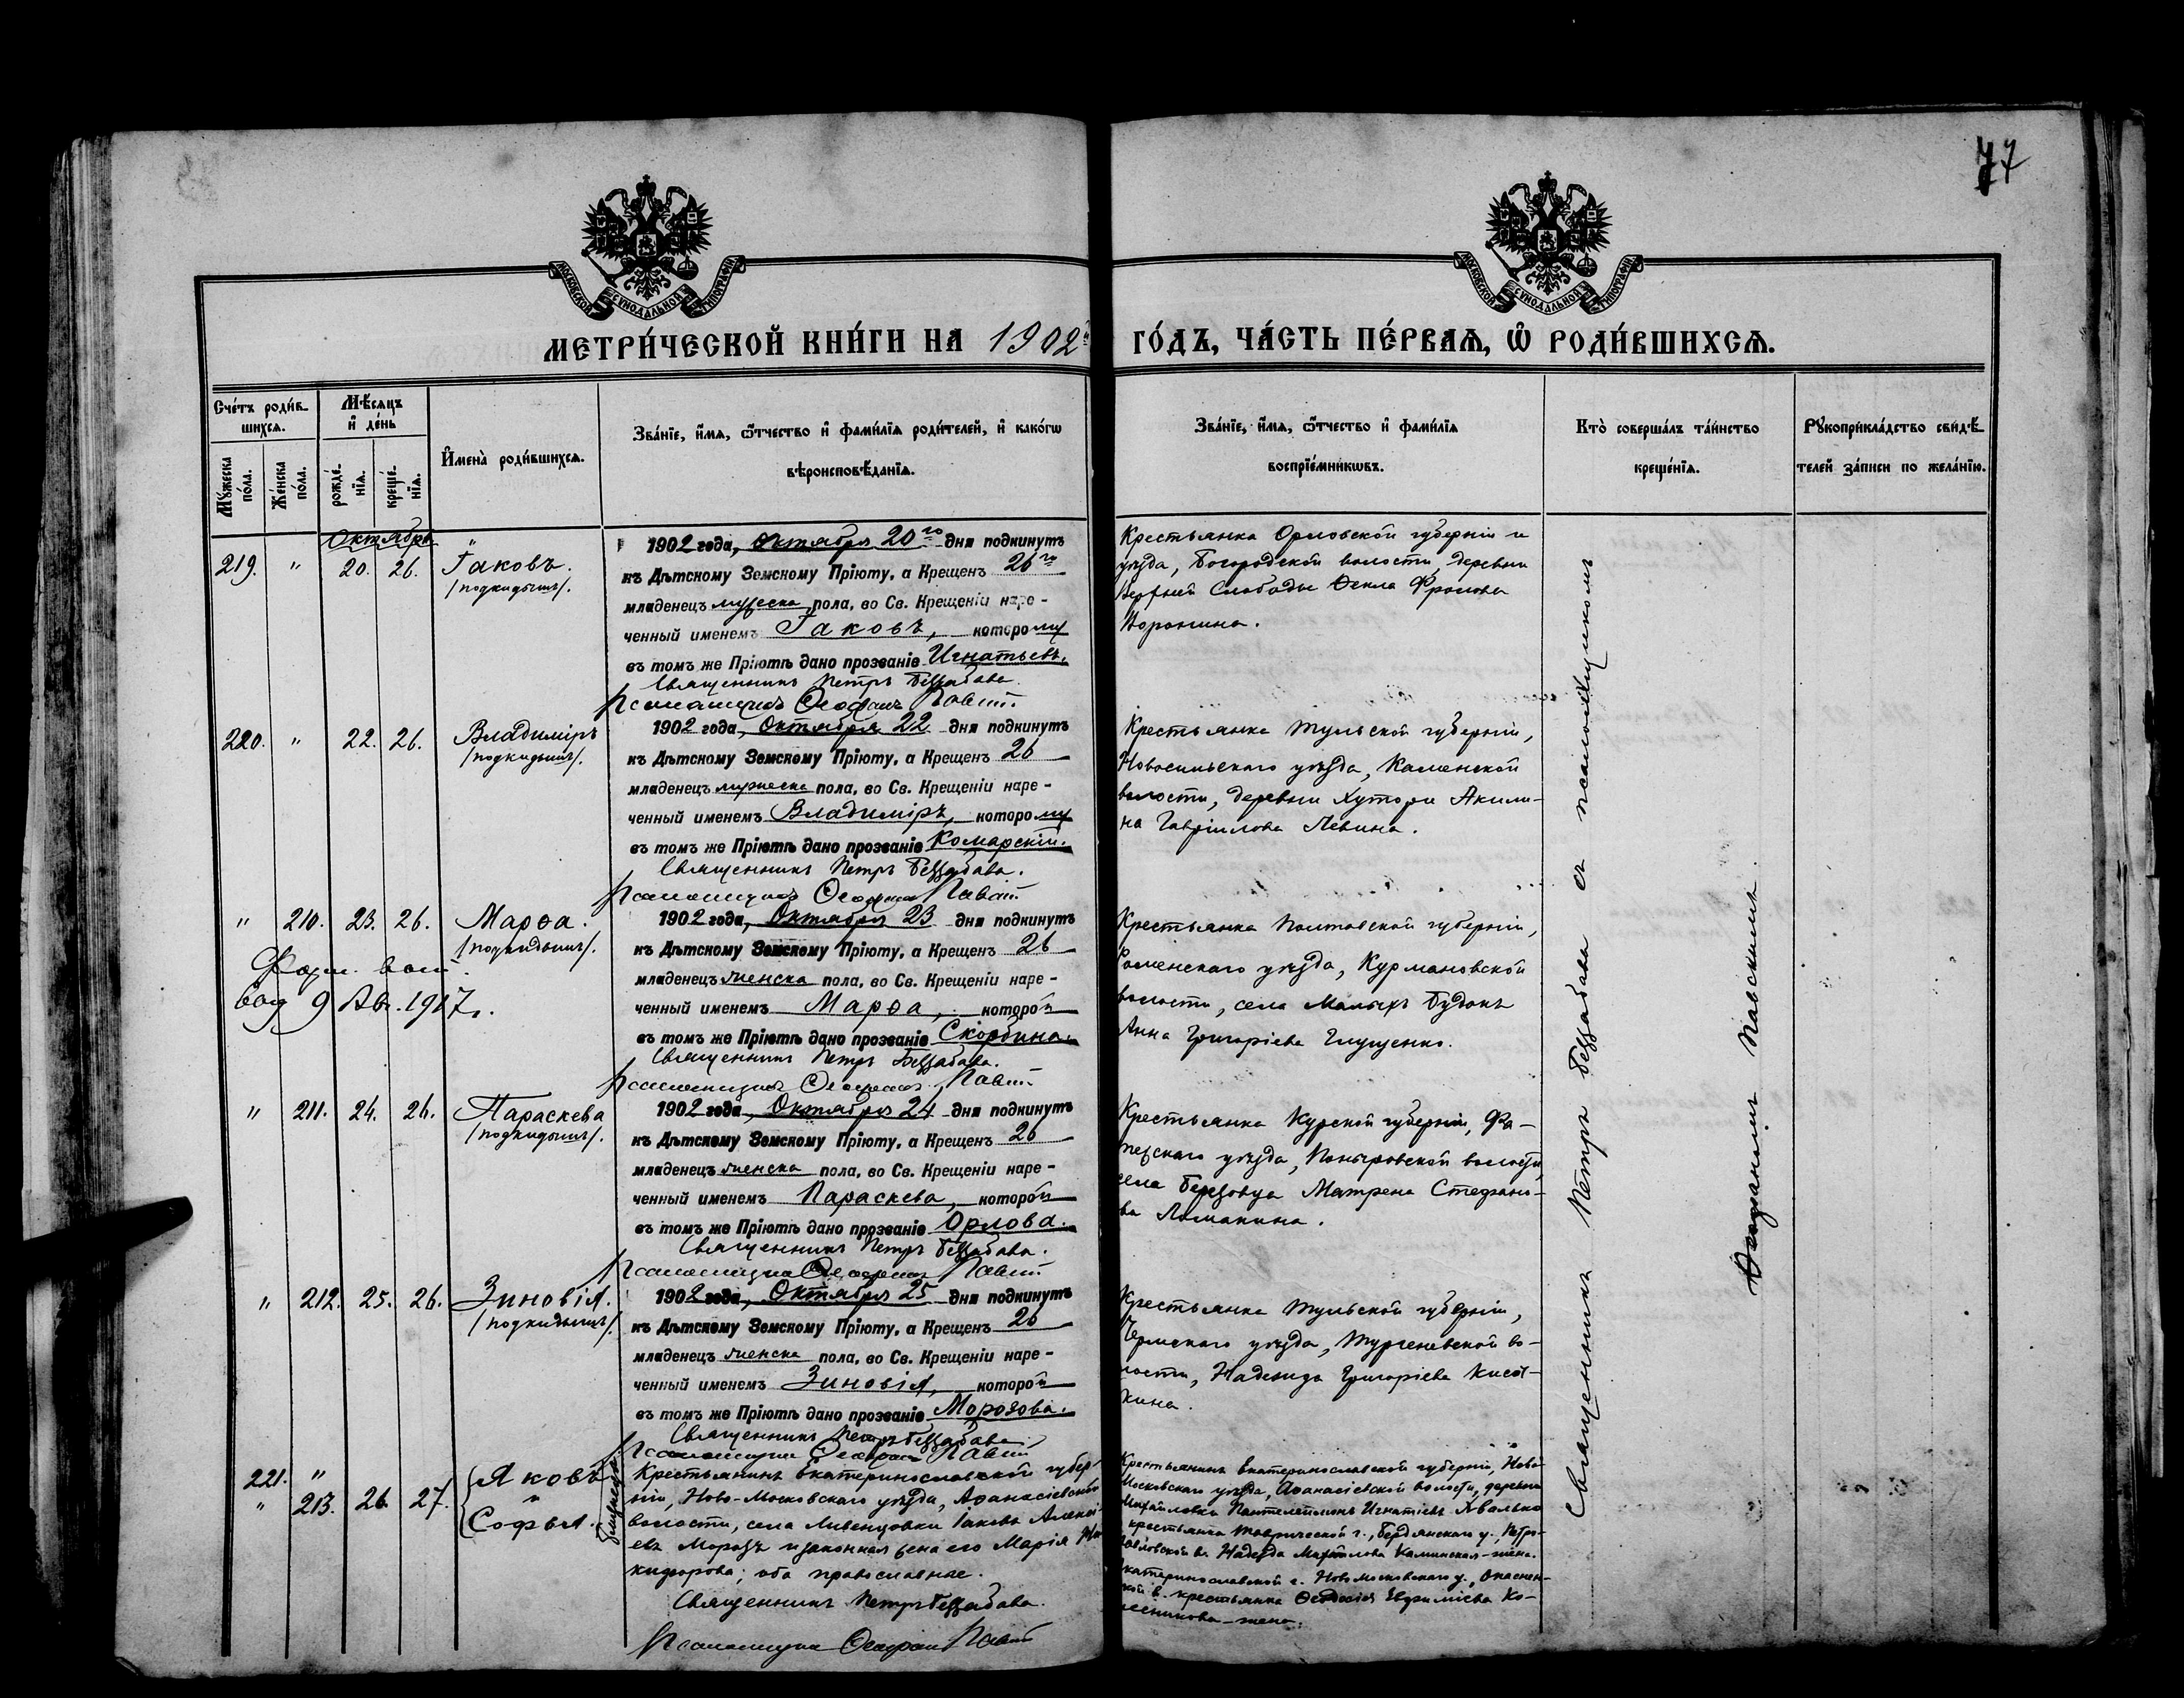 77
МОСКОВСКОЙ СѴНОДАЛЬНОЙ ТИПОГРАФІИ
МОСКОВСКОЙ СѴНОДАЛЬНОЙ ТИПОГРАФІИ
МЕТРИ́ЧЕСКОЙ КНИ́ГИ НА 1902й ГО́ДЪ, ЧА́СТЬ ПЕ́РВАѦ, Ѽ РОДИ́ВШИХСѦ.
Сче́тъ роди́в-
шихсѧ.
Мꙋ́жеска по́ла.
Же́нска по́ла.
Мѣ́сѧцъ
и҆ де́нь
рожде́-
нїѧ.
креще́-
нїѧ.
И҆мена̀ роди́вшихсѧ.
Зва́нїе, и҆́мѧ, ѻ҆́тчество и҆ фами́лїѧ роди́телей, и҆ како́гѡ
вѣроисповѣ́данїѧ.
Зва́нїе, и҆́мѧ, ѻ҆́тчество и҆ фами́лїѧ
воспрїе́мникѡвъ.
Кто̀ соверша́лъ та́инство
креще́нїѧ.
Рꙋкоприкла́дство свидѣ́-
телей за́писи по жела́нїю.
Октябрь
219. " 20. 26. Іаковъ.
/подкидышъ/.
1902 года, Октября 20го дня подкинутъ
къ Дѣтскому Земскому Пріюту, а Крещенъ 26го
младенецъ мужеска пола, во Св. Крещеніи наре-
ченный именемъ Іаковъ, которому
въ томъ же Пріютѣ дано прозваніе Игнатьевъ.
Священникъ Петръ Беззабава
Псаломщикъ Ѳеофанъ Павск.
Крестьянка Орловской губерніи и
уѣзда, Богородской волости, деревни
Верхней Слободы Ѳекла Фролова
Воронина.
220. " 22. 26. Владиміръ
/подкидышъ/.
1902 года, Октября 22 дня подкинутъ
къ Дѣтскому Земскому Пріюту, а Крещенъ 26
младенецъ мужеска пола, во Св. Крещеніи наре-
ченный именемъ Владиміръ, которому
въ томъ же Пріютѣ дано прозваніе Комарскій.
Священникъ Петръ Беззабава.
Псаломщикъ Ѳеофанъ Павск.
Крестьянка Тульской губерніи,
Новосильскаго уѣзда, Каменской
волости, деревни Хутори Акили-
на Гавріилова Левина.
" 210. 23. 26. Марѳа.
/подкидышъ/.
9 Ав. 1917г.
1902 года, Октября 23 дня подкинутъ
къ Дѣтскому Земскому Пріюту, а Крещенъ 26
младенецъ женска пола, во Св. Крещеніи наре-
ченный именемъ Марѳа, которой
въ томъ же Пріютѣ дано прозваніе Скорбина.
Священникъ Петръ Беззабава.
Псаломщикъ Ѳеофанъ Павск.
Крестьянка Полтавской губерніи,
Роменскаго уѣзда, Курмановской
волости, села Малыхъ Будокъ
Анна Григоріева Глущенко.
" 211. 24. 26. Параскева
/подкидышъ/.
1902 года, Октября 24 дня подкинутъ
къ Дѣтскому Земскому Пріюту, а Крещенъ 26
младенецъ женска пола, во Св. Крещеніи наре-
ченный именемъ Параскева, которой
въ томъ же Пріютѣ дано прозваніе Орлова.
Священникъ Петръ Беззабава.
Псаломщикъ Ѳеофанъ Павск.
Крестьянка Курской губерніи, Фа-
тежскаго уѣзда, Поныровской волости,
села Березовца Матрена Стефано-
ва Ломакина.
" 212. 25. 26. Зиновія.
/подкидышъ/.
1902 года, Октября 25 дня подкинутъ
къ Дѣтскому Земскому Пріюту, а Крещенъ 26
младенецъ женска пола, во Св. Крещеніи наре-
ченный именемъ Зиновія, которой
въ томъ же Пріютѣ дано прозваніе Морозова.
Священникъ Петръ Беззабава
Псаломщикъ Ѳеофанъ Павск.
Крестьянка Тульской губерніи,
Чернскаго уѣзда, Тургеневской во-
лости, Надежда Григоріева
221. " Яковъ
" 213. 26. 27. и
Софья. близнецы
Крестьянинъ Екатеринославской губер-
ніи, Ново-Московскаго уѣзда, Аѳанасіевской
волости, села Ливенцовки Іаковъ Алексі-
евъ Морозъ и законная жена его Марія Ни-
кифорова; оба православные.
Священникъ Петръ Беззабава.
Псаломщикъ Ѳеофанъ Павск.
Крестьянинъ Екатеринославской губерніи, Ново-
Московскаго уѣзда, Аѳанасіевской волости, деревни
Михайловки Пантелеимонъ Игнатіевъ
крестьянка Таврической г., Бердянскаго у., Петро-
павловской в. Надежда Михайлова Каминская-жена.
Екатеринославской г. Новомосковскаго у.,
в. крестьянка Ѳеодосія Евфиміева Ко-
лесникова-жена.
Священникъ Петръ Беззабава съ псаломщикомъ
Ѳеофаномъ Павскимъ.